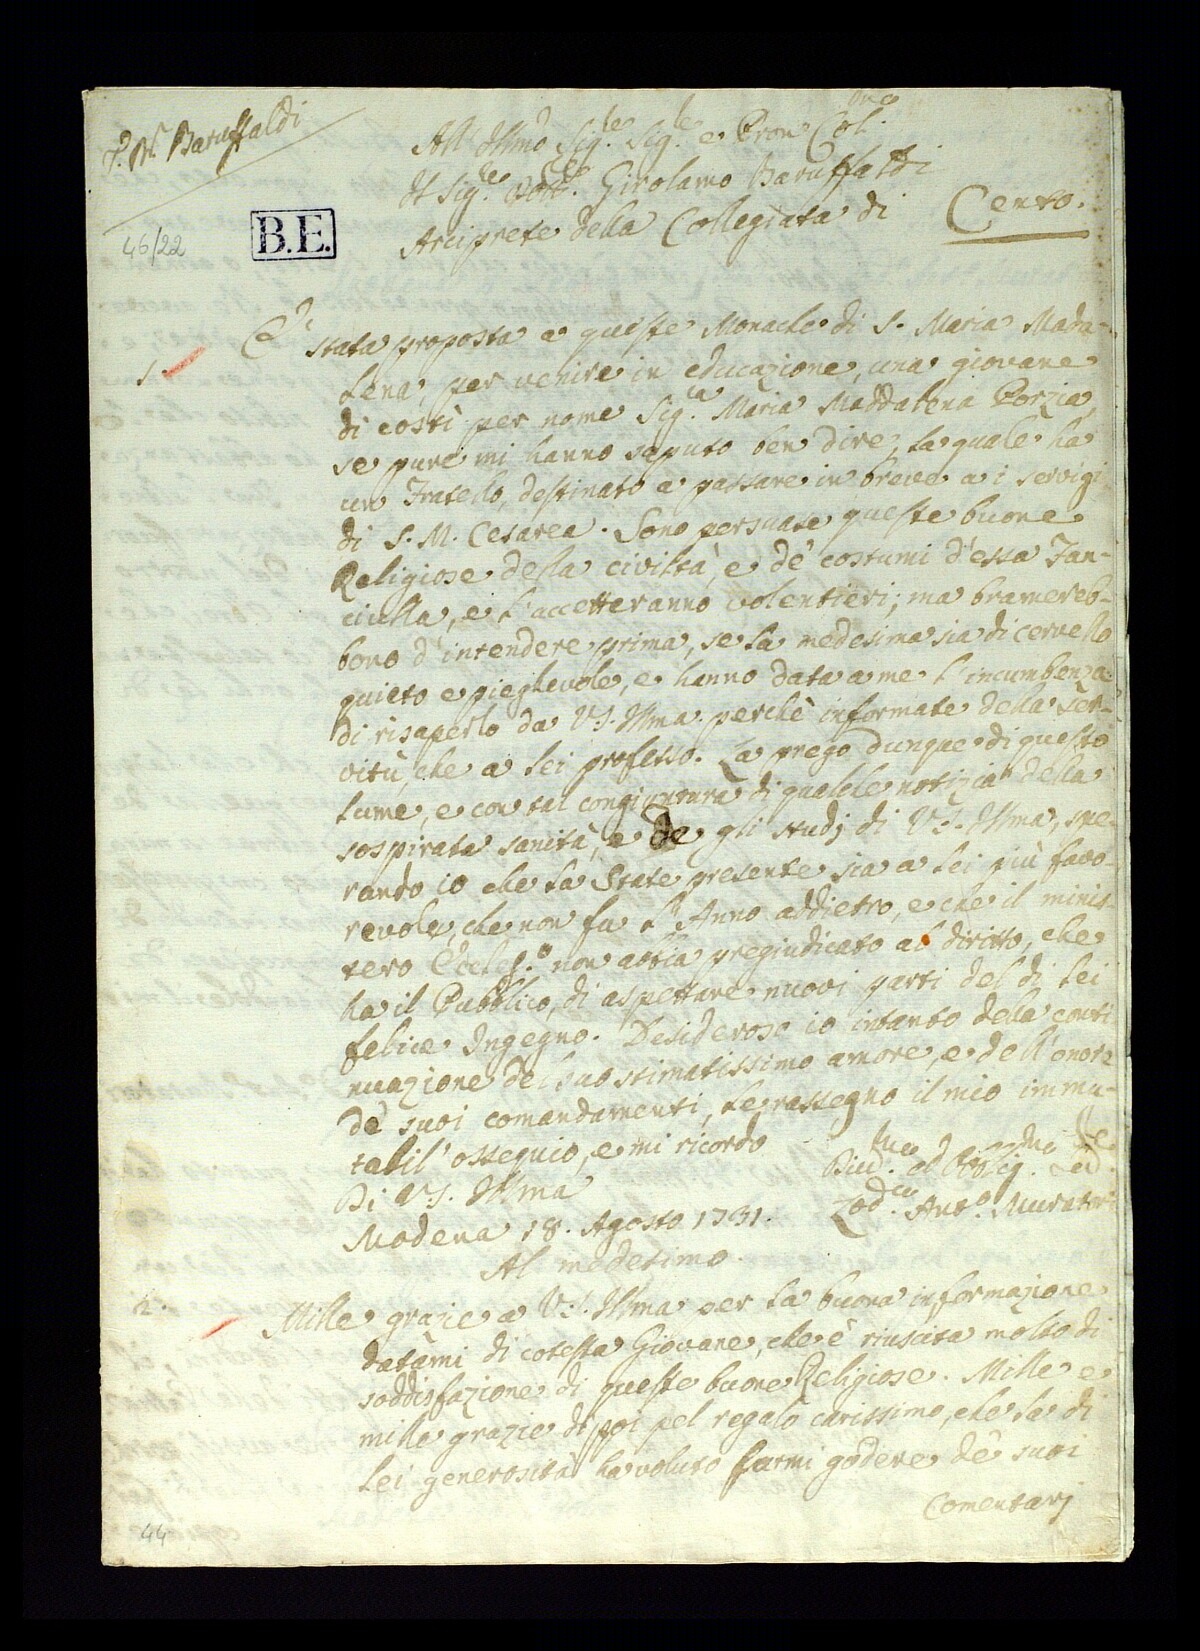 P. M. Baruffaldi
46/22
B.E.
All' Illmo Sig.re Sig.re e Pron Col.mo
Il Sig.re Dott.re Girolamo Baruffaldi
Arciprete della Collegiata di Cento.
1.
E' stata proposta a queste Monache di S. Maria Mada-
lena, per venire in educazione, una giovane
di costì per nome Sig.ra Maria Maddalena Porzia,
se pure mi hanno saputo ben dire, la quale ha
un Fratello, destinato a passare in breve a i servigi
di S. M. Cesarea. Sono persuase queste buone
Religiose della civiltà, e de' costumi d'essa Fan-
ciulla, e l'accetteranno volentieri; ma bramereb-
bono d'intendere prima, se la medesima sia di cervello
quieto e pieghevole, e hanno data a me l'incumbenza
di risaperlo da V.S. Illma. perchè informate della ser-
vitù, che a lei professo. La prego dunque di questo
lume, e con tal congiuntura di qualche notizia della
sospirata sanità, e de gli studj di V.S. Illma, spe-
rando io che la State presente sia a lei più favo-
revole, che non fu l'Anno addietro, e che il minis-
tero Eccles.co non abbia pregiudicato al diritto, che
ha il Pubblico, di aspettare nuovi parti del di lei
felice Ingegno. Desideroso io intanto della conti
nuazione del suo stimatissimo amore, e dell'onore
de' suoi comandamenti, le rassegno il mio immu-
tabil' ossequio, e mi ricordo
Di V.S. Illma
Div.mo ed Obblig.mo Ser.e
Modena 18. Agosto 1731. Lod.co Ant.o Muratori
Al medesimo.
2.
Mille grazie a V.S. Illma per la buona informazione
datami di cotesta Giovane, che è riuscita molto di
soddisfazione di queste buone Religiose. Mille e
mille grazie di poi pel regalo carissimo, che la di
lei generosità ha voluto farmi godere de' suoi
Comentarj
44